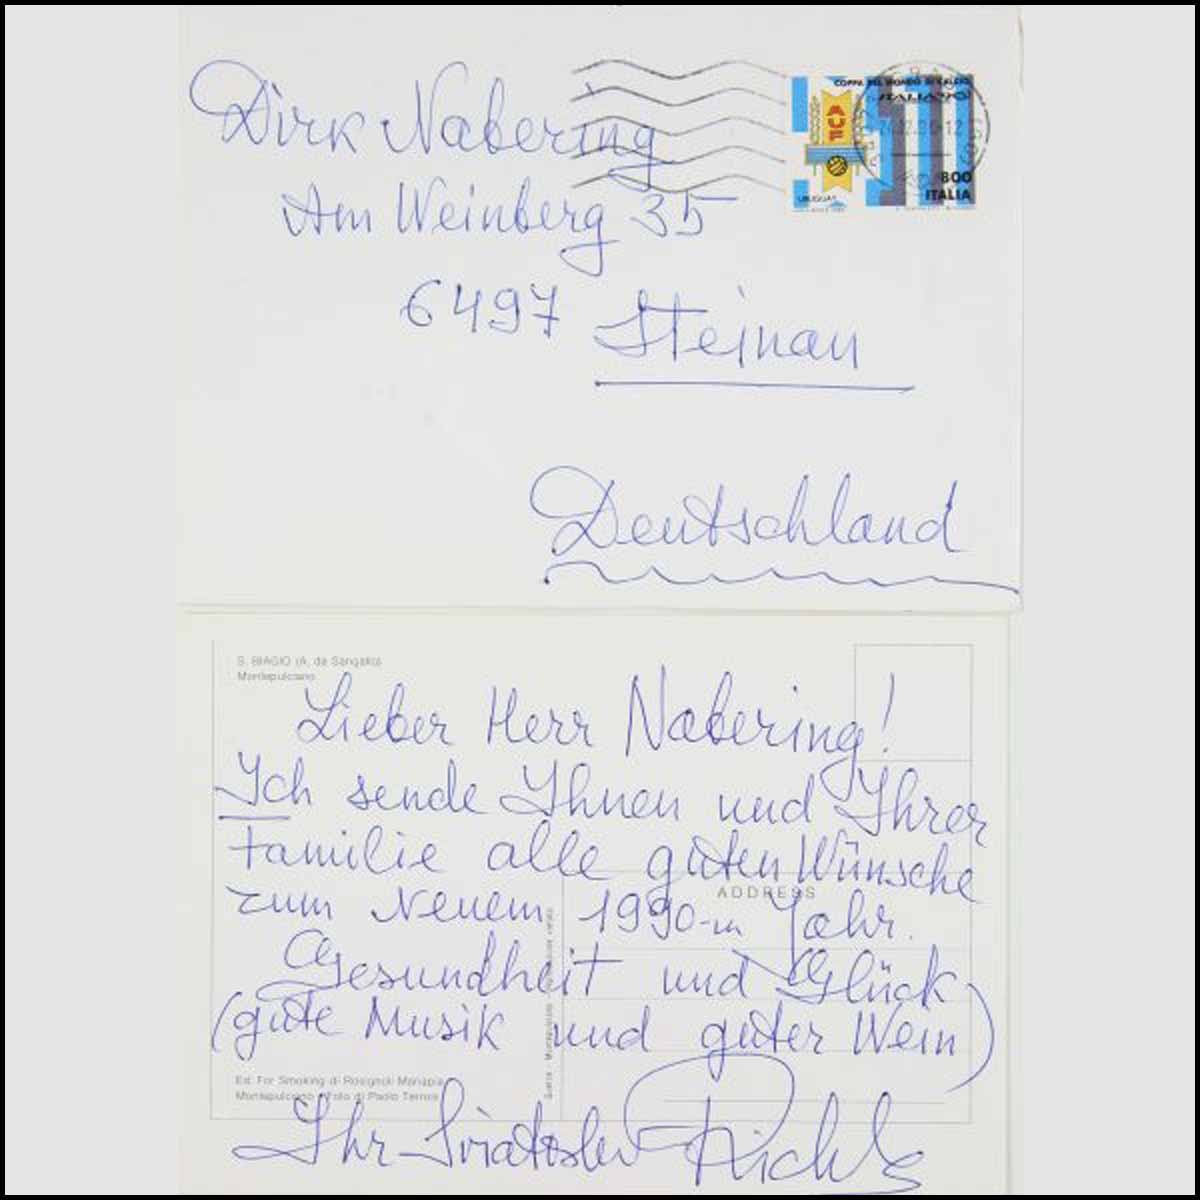 Dirk Nabering
Am Weinberg 35
6497 Steinau
Deutschland
COPPA DEL MONDO DI CALCIO
ITALIA '90
AUF
URUGUAY
800
ITALIA
S. BIAGIO (A. da Sangallo)
Montepulciano
Lieber Herr Nabering!
Ich sende Ihnen und Ihrer
Familie alle guten Wünsche
ADDRESS
zum Neuem 1990-m Jahr.
Gesundheit und Glück
(gute Musik und guter Wein)
Ed. For Smoking di Rosignoli Mariapia
Montepulciano - Foto di Paolo Terrosi
Ihr Sviatoslav Richter